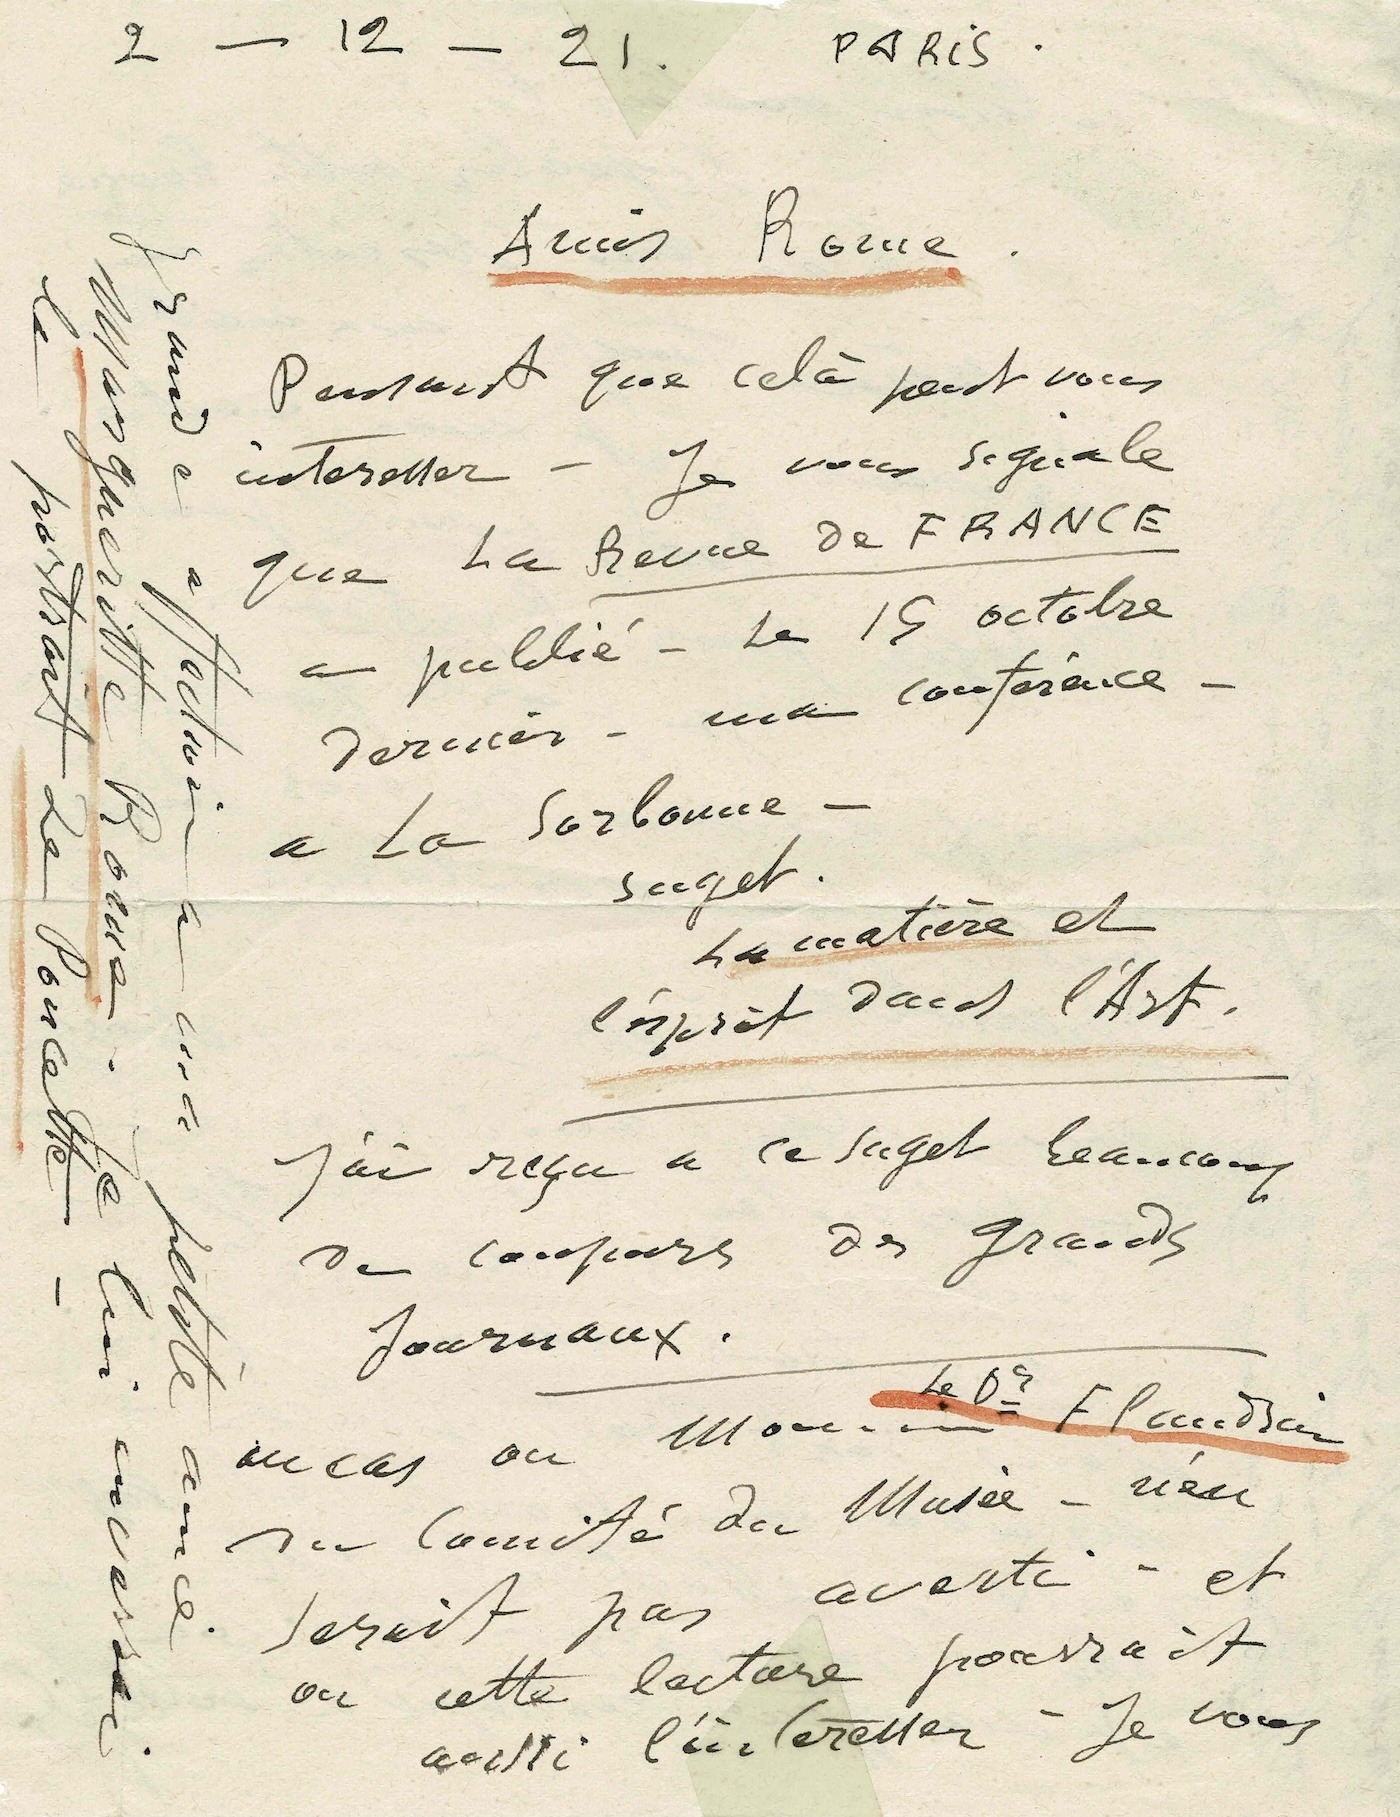 2 — 12 — 21. PARIS.
Amis Rome.
Pensant que celà peut vous
interesser — Je vous signale
que La Revue de FRANCE
a publié — Le 15 octobre
dernier — ma conférence —
a La Sorbonne —
suget.
La matière et
l'ésprit dans l'Art.
J'ai reçu a ce suget beaucoup
de coupures des grands
Journaux.
Le Dr Flandrin
au cas ou Mon
du Comité du Musée — n'en
serait pas averti — et
ou cette lecture pourrait
aussi l'interesser — Je vous
Grande affection a ma petite amie
Margueritte Rome. Je lui enverrai.
le portrait de Poucette —